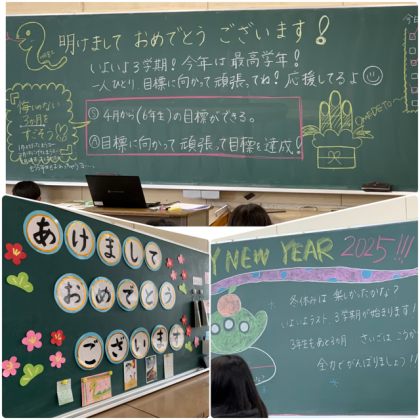 明けまして おめでとう ございます!
いよいよ3学期! 今年は 最高学年!
一人ひとり、目標に向かって 頑張ってね! 応援してるよ
悔いのない
3ヵ月を
すごそう
Ⓢ 4月から(6年生)の目標ができる。
Ⓐ目標に向かって 頑張って目標を達成!
あけまして
おめでとう
ございます
Y NEW YEAR 2025!!!
冬休みは 楽しかったかな?
いよいよラスト 3学期が始まります!
3年生もあと3ヵ月
全力でがんばりましょう!!